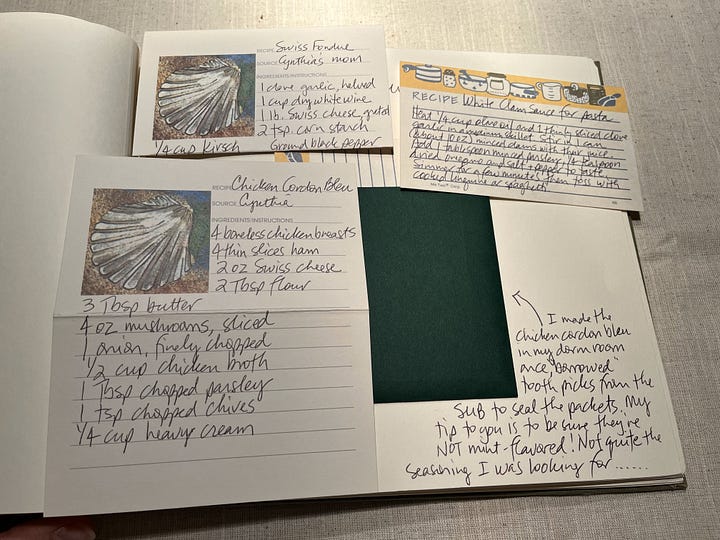 RECIPE Swiss Fondue
SOURCE Cynthia's mom
INGREDIENTS/INSTRUCTIONS
1 clove garlic, halved
1 cup dry white wine
1 lb. Swiss cheese, grated
2 tsp. corn starch
1/4 cup Kirsch Ground black pepper
RECIPE White Clam Sauce for pasta
Heat 1/4 cup olive oil and 1 thinly sliced clove
garlic in a medium skillet. Stir in 1 can
(about 10 oz) minced clams with their juice.
Add 1 tablespoon minced parsley, 1/4 teaspoon
dried oregano and salt + pepper to taste.
Simmer for a few minutes, then toss with
cooked linguine or spaghetti.
RECIPE Chicken Cordon Bleu
SOURCE Cynthia
INGREDIENTS/INSTRUCTIONS
4 boneless chicken breasts
4 thin slices ham
2 oz Swiss cheese
2 Tbsp flour
3 Tbsp butter
4 oz mushrooms, sliced
1 onion, finely chopped
1/2 cup chicken broth
1 Tbsp chopped parsley
1 tsp chopped chives
1/4 cup heavy cream
I made the
chicken cordon bleu
in my dorm room
once, "borrowed"
tooth picks from the
SUB to seal the packets. My
tip to you is to be sure they're
NOT mint-flavored! Not quite the
seasoning I was looking for......